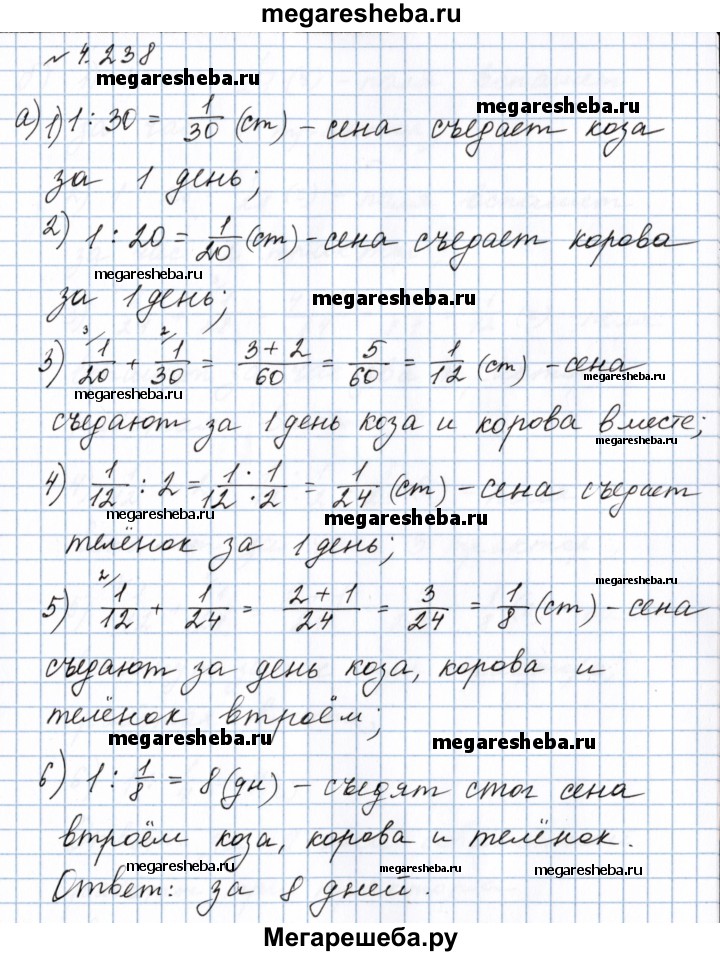 megaresheba.ru
№ 4.238
megaresheba.ru
megaresheba.ru
а) 1) 1 : 30 = 1/30 (ст) – сена съедает коза
за 1 день;
2) 1 : 20 = 1/20 (ст) – сена съедает корова
megaresheba.ru
за 1 день;
megaresheba.ru
3) ³⁄1/20 + ²⁄1/30 = 3+2/60 = 5/60 = 1/12 (ст) – сена
megaresheba.ru
megaresheba.ru
съедают за 1 день коза и корова вместе;
megaresheba.ru
4) 1/12 : 2 = 1·1/12·2 = 1/24 (ст) – сена съедает
megaresheba.ru
megaresheba.ru
телёнок за 1 день;
megaresheba.ru
5) ²⁄1/12 + 1/24 = 2+1/24 = 3/24 = 1/8 (ст) – сена
megaresheba.ru
съедают за день коза, корова и
телёнок втроём;
megaresheba.ru
megaresheba.ru
6) 1 : 1/8 = 8 (дн) – съедят стог сена
втроём коза, корова и телёнок.
megaresheba.ru
megaresheba.ru
megaresheba.ru
Ответ: за 8 дней.
Мегарешеба.ру